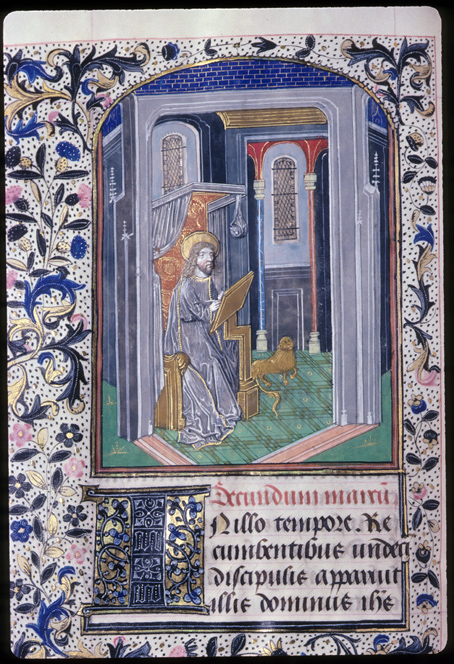 Secundum marcū
IN illo tempore. Re
cumbentibus undeci
discipulis apparuit
illis dominus ihs̄